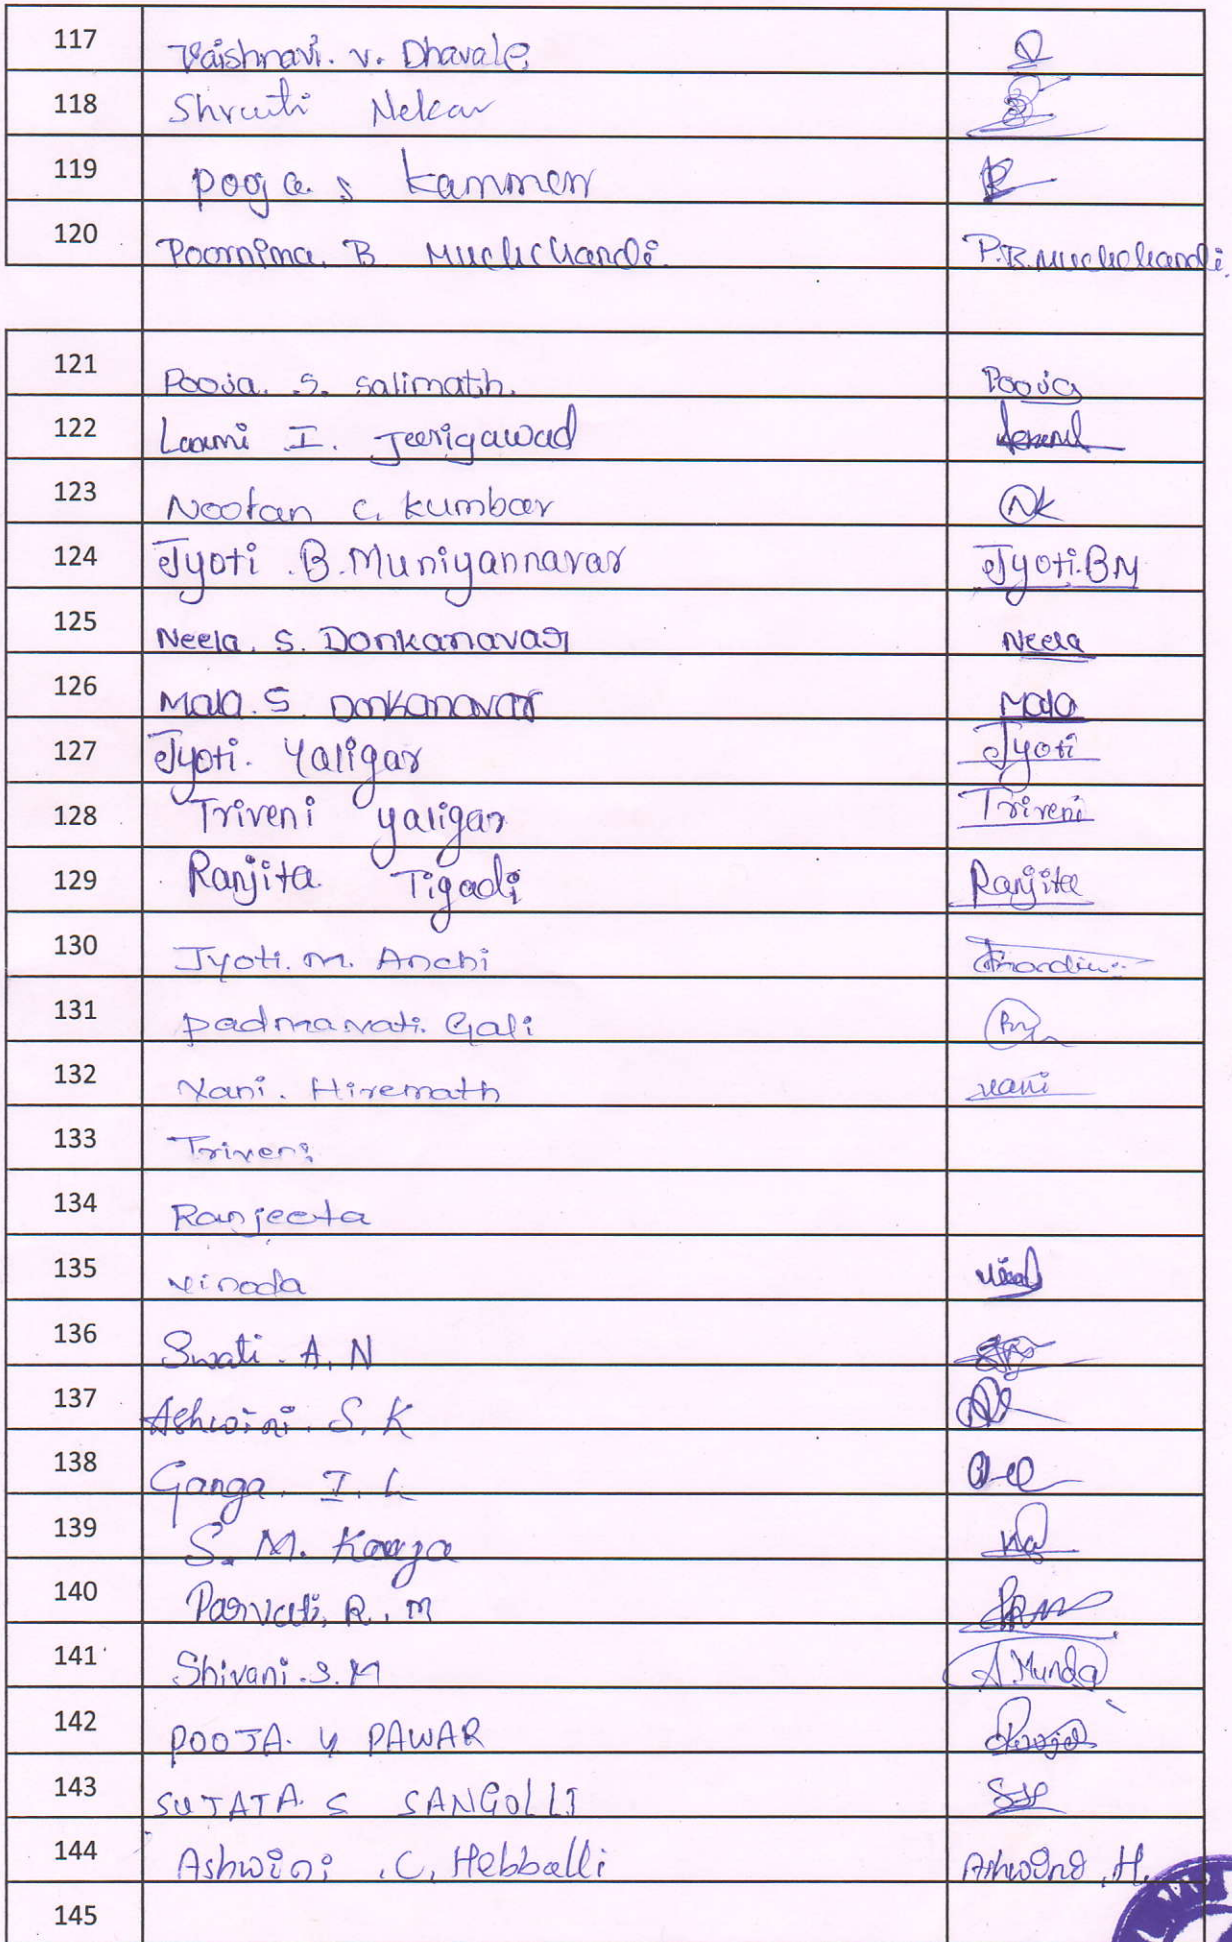 117 Vaishnavi. v. Dhavale
118 Shruti Nekar
119 pooja. s kammar
120 Poornima. B Muchchandi. P.B.Muchchandi.
121 Pooja. S. Salimath. Pooja
122 Laxmi I. Jeerigawad
123 Nootan C. Kumbar NK
124 Jyoti .B.Muniyannavar Jyoti.BM
125 Neela. S. Donkanavar Neela
126 Mala. S. Donkanavar Mala
127 Jyoti. Yaligar Jyoti
128 Triveni yaligar Triveni
129 Ranjita Tigadi Ranjita
130 Jyoti. M. Anchi
131 Padmavati. Gali
132 Vani. Hiremath vani
133 Triveni
134 Ranjeeta
135 Vinoda
136 Swati. A. N
137 Ashwini. S. K
138 Ganga. I. L
139 S. M.
140 Parvati. R. M
141 Shivani. S. M Munda
142 POOJA. Y PAWAR
143 SUJATA. S SANGOLLI
144 Ashwini .C. Hebballi Ashwini .H.
145